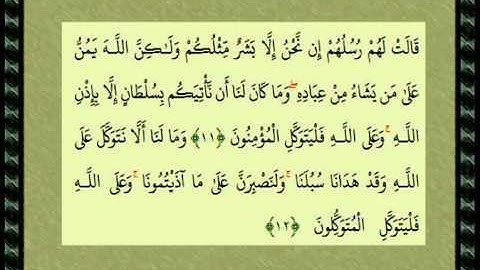 قَالَتْ لَهُمْ رُسُلُهُمْ إِن نَّحْنُ إِلَّا بَشَرٌ مِّثْلُكُمْ وَلَـٰكِنَّ اللَّهَ يَمُنُّ
عَلَىٰ مَن يَشَاءُ مِنْ عِبَادِهِ ۖ وَمَا كَانَ لَنَا أَن نَّأْتِيَكُم بِسُلْطَانٍ إِلَّا بِإِذْنِ
اللَّهِ ۚ وَعَلَى اللَّهِ فَلْيَتَوَكَّلِ الْمُؤْمِنُونَ ﴿١١﴾ وَمَا لَنَا أَلَّا نَتَوَكَّلَ عَلَى
اللَّهِ وَقَدْ هَدَانَا سُبُلَنَا ۚ وَلَنَصْبِرَنَّ عَلَىٰ مَا آذَيْتُمُونَا ۚ وَعَلَى اللَّهِ
فَلْيَتَوَكَّلِ الْمُتَوَكِّلُونَ ﴿١٢﴾